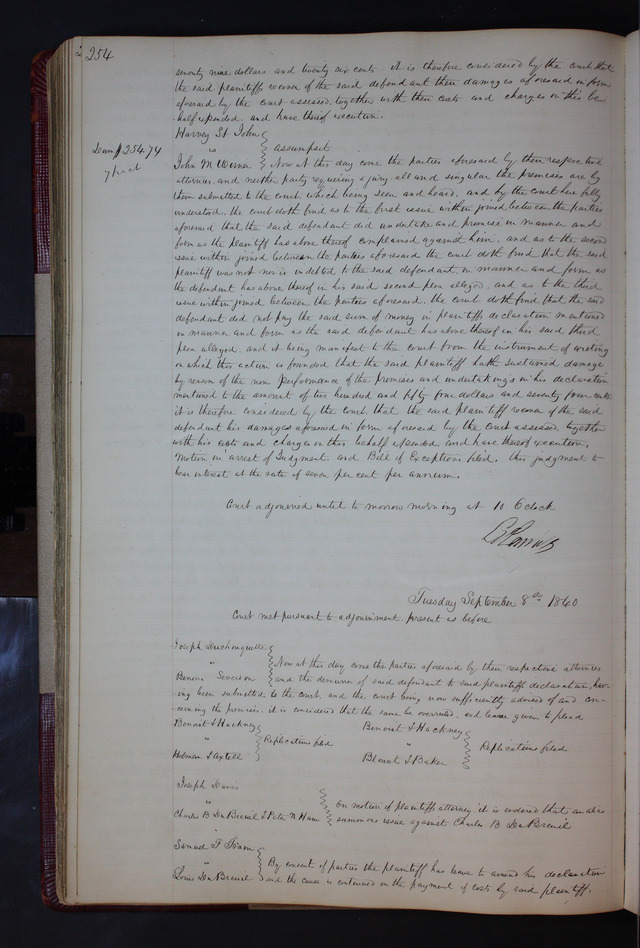 254
seventy nine dollars and twenty six cents it is therefore considered by the court that
the said plaintiffs recover of the said defendant their damages aforesaid in form
aforesaid by the court assessed, together with their costs and charges in this be
half expended and have thereof execution.
Harvey St John
vs
assumpsit
Dam $254.74
7 p ct
John M Wimer
Now at this day come the parties aforesaid by their respective
attornies and neither party requiring a jury all and singular the premises are by
them submitted to the court, which being seen and heard, and by the court here fully
understood, the court doth find as to the first issue within joined between the parties
aforesaid that the said defendant did undertake and promise in manner and
form as the plaintiff has above thereof complained against him. and as to the second
issue within joined between the parties aforesaid the court doth find that the said
plaintiff was not nor is indebted to the said defendant in manner and form as
the defendant has above thereof in his said second plea alleged. and as to the third
issue within joined between the parties aforesaid, the court doth find that the said
defendant did not pay the said sum of money in plaintiffs declaration mentioned
in manner and form as the said defendant has above thereof in his said third
plea alleged, and it being manifest to the court from the instrument of writing
on which this action is founded that the said plaintiff hath sustained damage
by reason of the non performance of the promises and undertakings in his declaration
mentioned to the amount of two hundred and fifty four dollars and seventy four cents
it is therefore considered by the court that the said plaintiff recover of the said
defendant his damages aforesaid in form aforesaid by the court assessed, together
with his costs and charges in this behalf expended and have thereof execution.
Motion in arrest of Judgment and Bill of Exceptions filed. this judgment to
bear interest at the rate of seven per cent per annum.
Court adjourned until to morrow morning at 10 O clock
Tuesday September 8th 1840
Court met pursuant to adjournment present as before
Joseph Duchouquette
"
Now at this day come the parties aforesaid by their respective attornies
Benoni
and the demurrer of said defendant to said plaintiffs declaration, hav-
ing been submitted to the court, and the court being now sufficiently advised of and con-
cerning the premises. it is considered that the same be overruled, and leave given to plead
Benoit T Hackney
"
Replications filed
Benoit T Hackney
"
Replications filed
Axtell
Blount T Baker
Joseph Davis
"
On motion of plaintiffs attorney it is ordered that an alias
Charles B DuBreuil & Peter N Ham
summons issue against Charles B DuBreuil
Samuel F
"
By consent of parties the plaintiff has leave to amend his declaration
Louis DuBreuil
and the cause is continued on the payment of costs by said plaintiff.